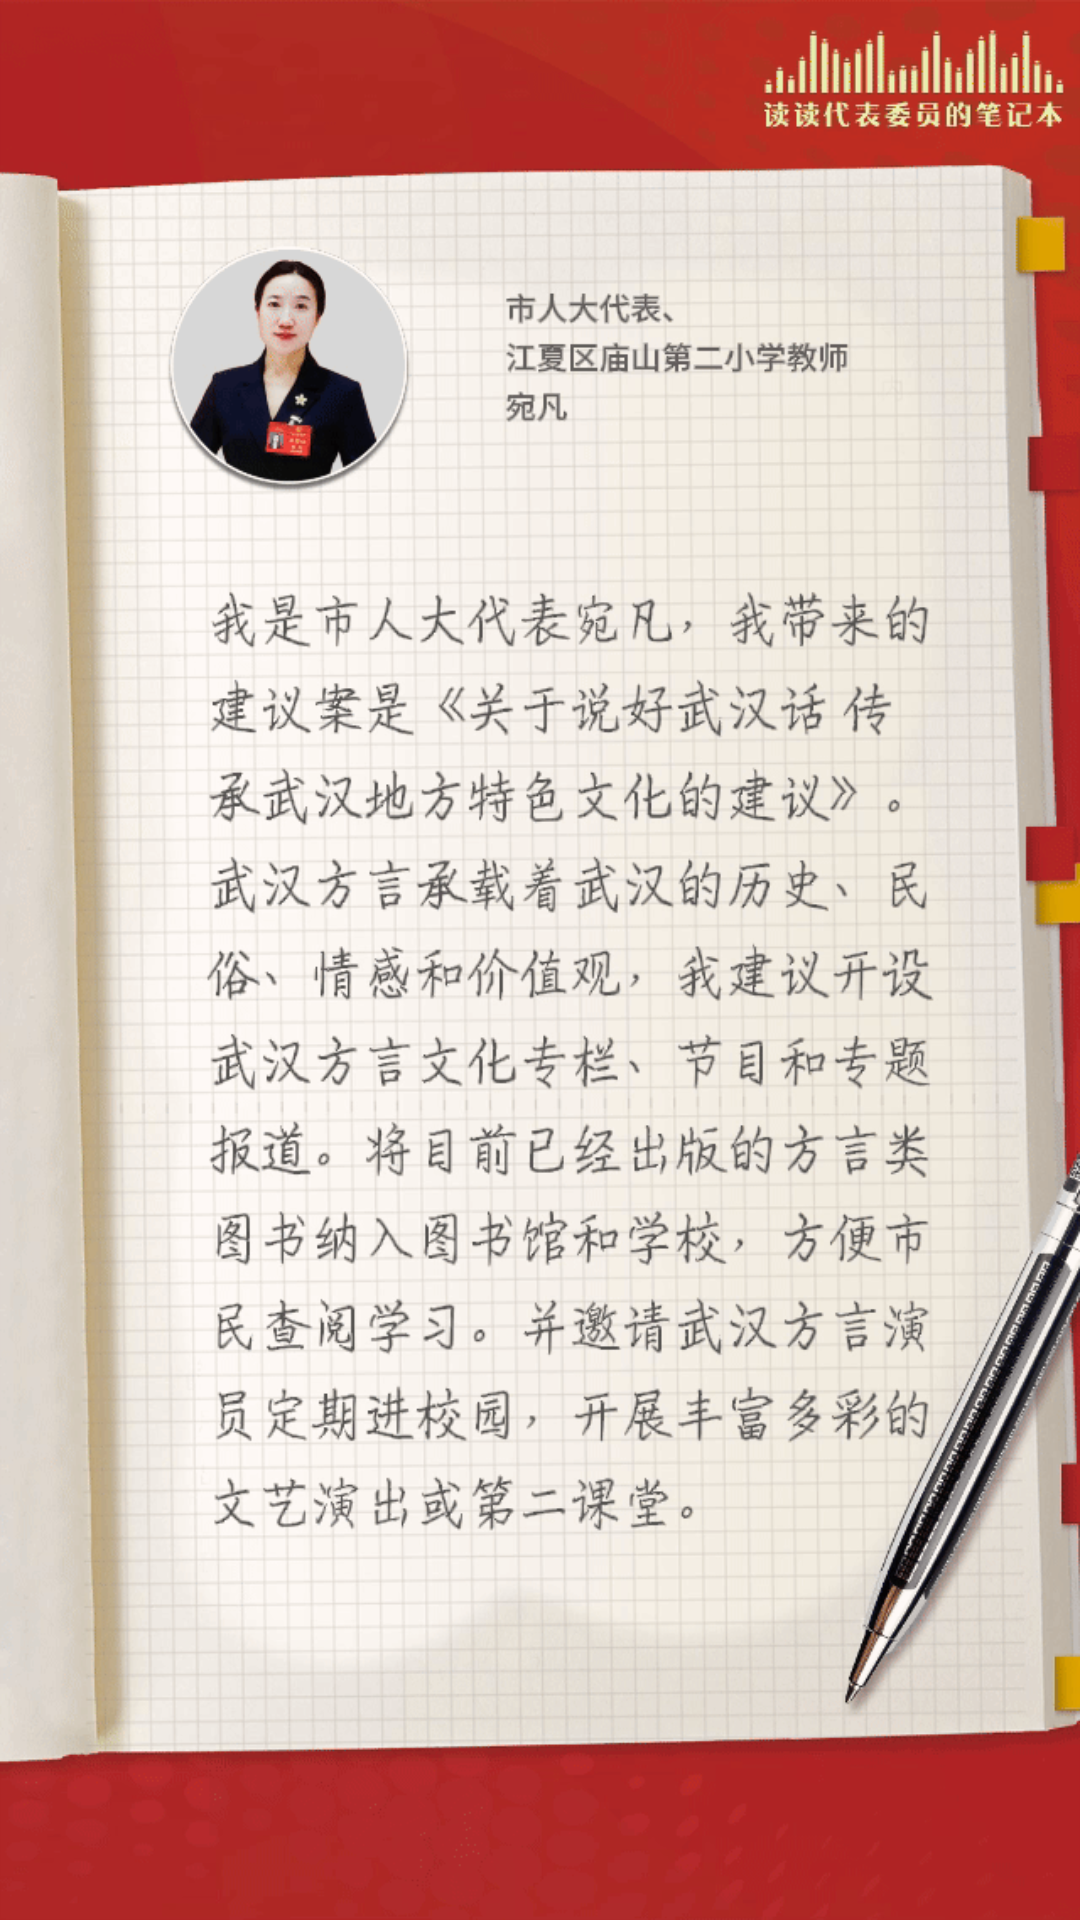 读读代表委员的笔记本
市人大代表、
江夏区庙山第二小学教师
宛凡
我是市人大代表宛凡，我带来的
建议案是《关于说好武汉话 传
承武汉地方特色文化的建议》。
武汉方言承载着武汉的历史、民
俗、情感和价值观，我建议开设
武汉方言文化专栏、节目和专题
报道。将目前已经出版的方言类
图书纳入图书馆和学校，方便市
民查阅学习。并邀请武汉方言演
员定期进校园，开展丰富多彩的
文艺演出或第二课堂。